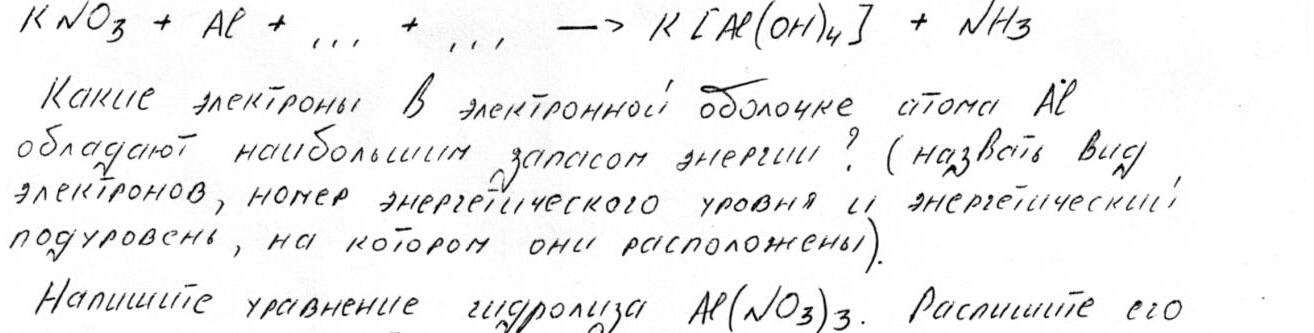 KNO3 + Al + ... + ... —> K[Al(OH)4] + NH3
Какие электроны в электронной оболочке атома Al
обладают наибольшим запасом энергии? (назвать вид
электронов, номер энергетического уровня и энергетический
подуровень, на котором они расположены).
Напишите уравнение гидролиза Al(NO3)3. Распишите его